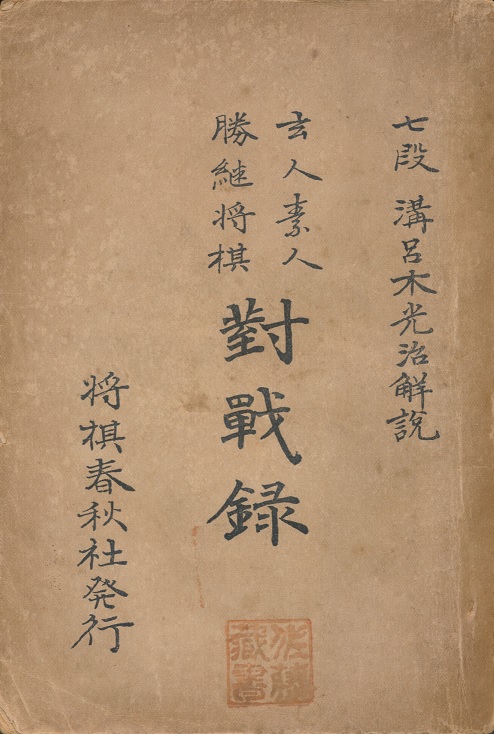 七段 溝呂木光治解説
玄人素人
勝継将棋
對戰録
将棋春秋社発行
蔵書